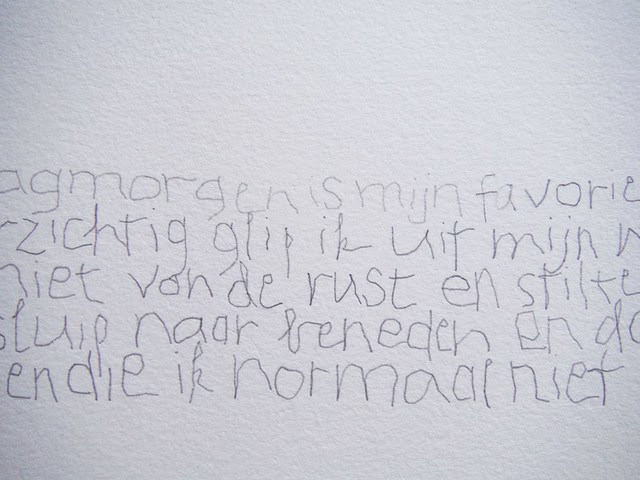 agmorgen is mijn favorie
rzichtig glip ik uit mijn
niet van de rust en stilte
sluip naar beneden en da
en die ik normaal niet